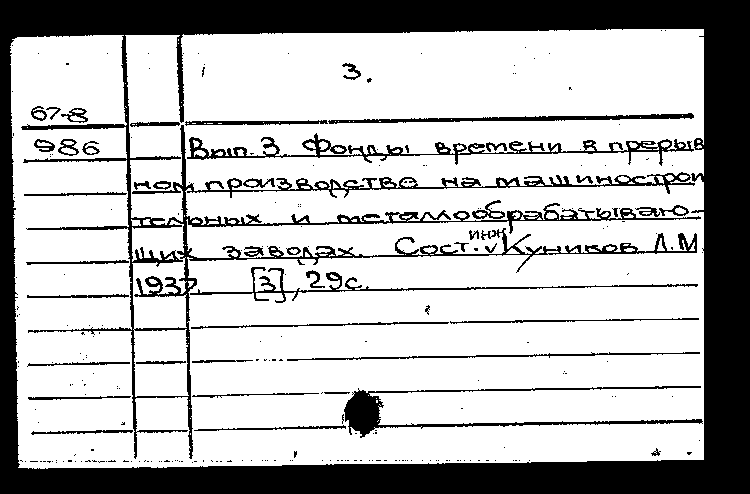 3.
67-8
986 Вып. 3. Фонды времени в прерыв
ном производстве на машинострои
тельных и металлообрабатываю-
щих заводах. Сост. инж. Куников Л.М.
1937. [3], 29с.